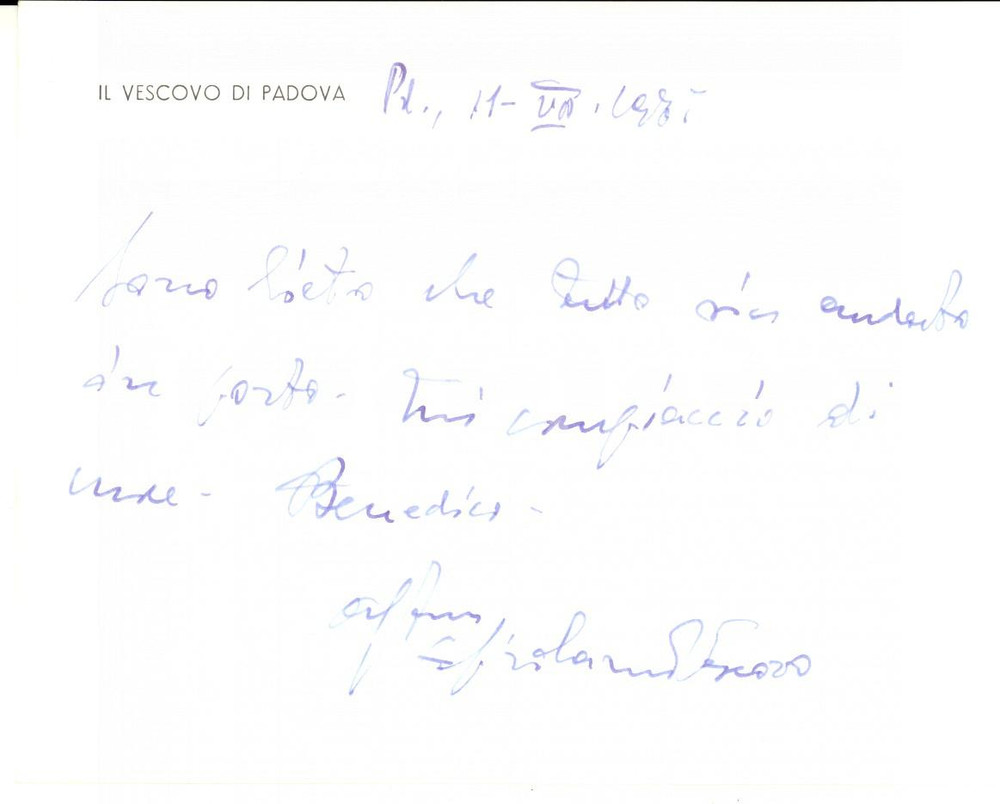 IL VESCOVO DI PADOVA Pd., 11-VII.1975
Sono lieto che tutto sia andato
in porto. Mi compiaccio di
cuore. Benedico.
aff.mo
+ Girolamo Vescovo